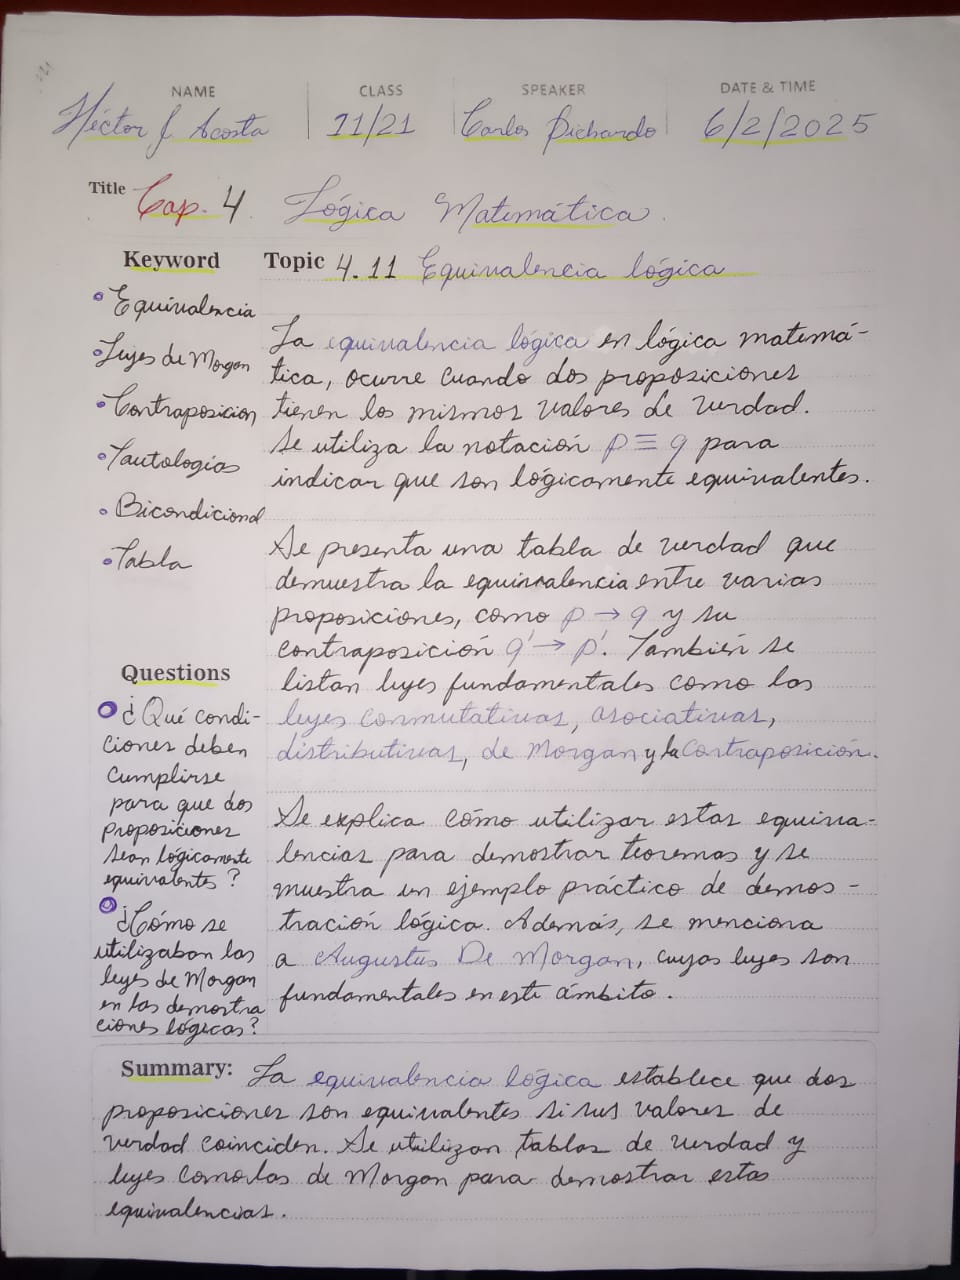 NAME CLASS SPEAKER DATE & TIME
Héctor J. Acosta 11/21 Carlos Pichardo 6/2/2025
Title Cap. 4 Lógica Matemática.
Keyword
• Equivalencia
• Leyes de Morgan
• Contraposicion
• Tautologías
• Bicondicional
• Tabla
Questions
¿Qué condi-
ciones deben
cumplirse
para que dos
proposiciones
sean lógicamente
equivalentes?
¿Cómo se
utilizaban las
leyes de Morgan
en las demostra
ciones lógicas?
Topic 4.11 Equivalencia lógica
La equivalencia lógica en lógica matemá-
tica, ocurre cuando dos proposiciones
tienen los mismos valores de verdad.
Se utiliza la notación p ≡ q para
indicar que son lógicamente equivalentes.
Se presenta una tabla de verdad que
demuestra la equivalencia entre varias
proposiciones, como p → q y su
contraposición q' → p'. También se
listan leyes fundamentales como las
leyes conmutativas, asociativas,
distributivas, de Morgan y la Contraposición.
Se explica cómo utilizar estas equiva-
lencias para demostrar teoremas y se
muestra un ejemplo práctico de demos-
tración lógica. Además, se menciona
a Augustus De Morgan, cuyas leyes son
fundamentales en este ámbito.
Summary: La equivalencia lógica establece que dos
proposiciones son equivalentes si sus valores de
verdad coinciden. Se utilizan tablas de verdad y
leyes como las de Morgan para demostrar estas
equivalencias.